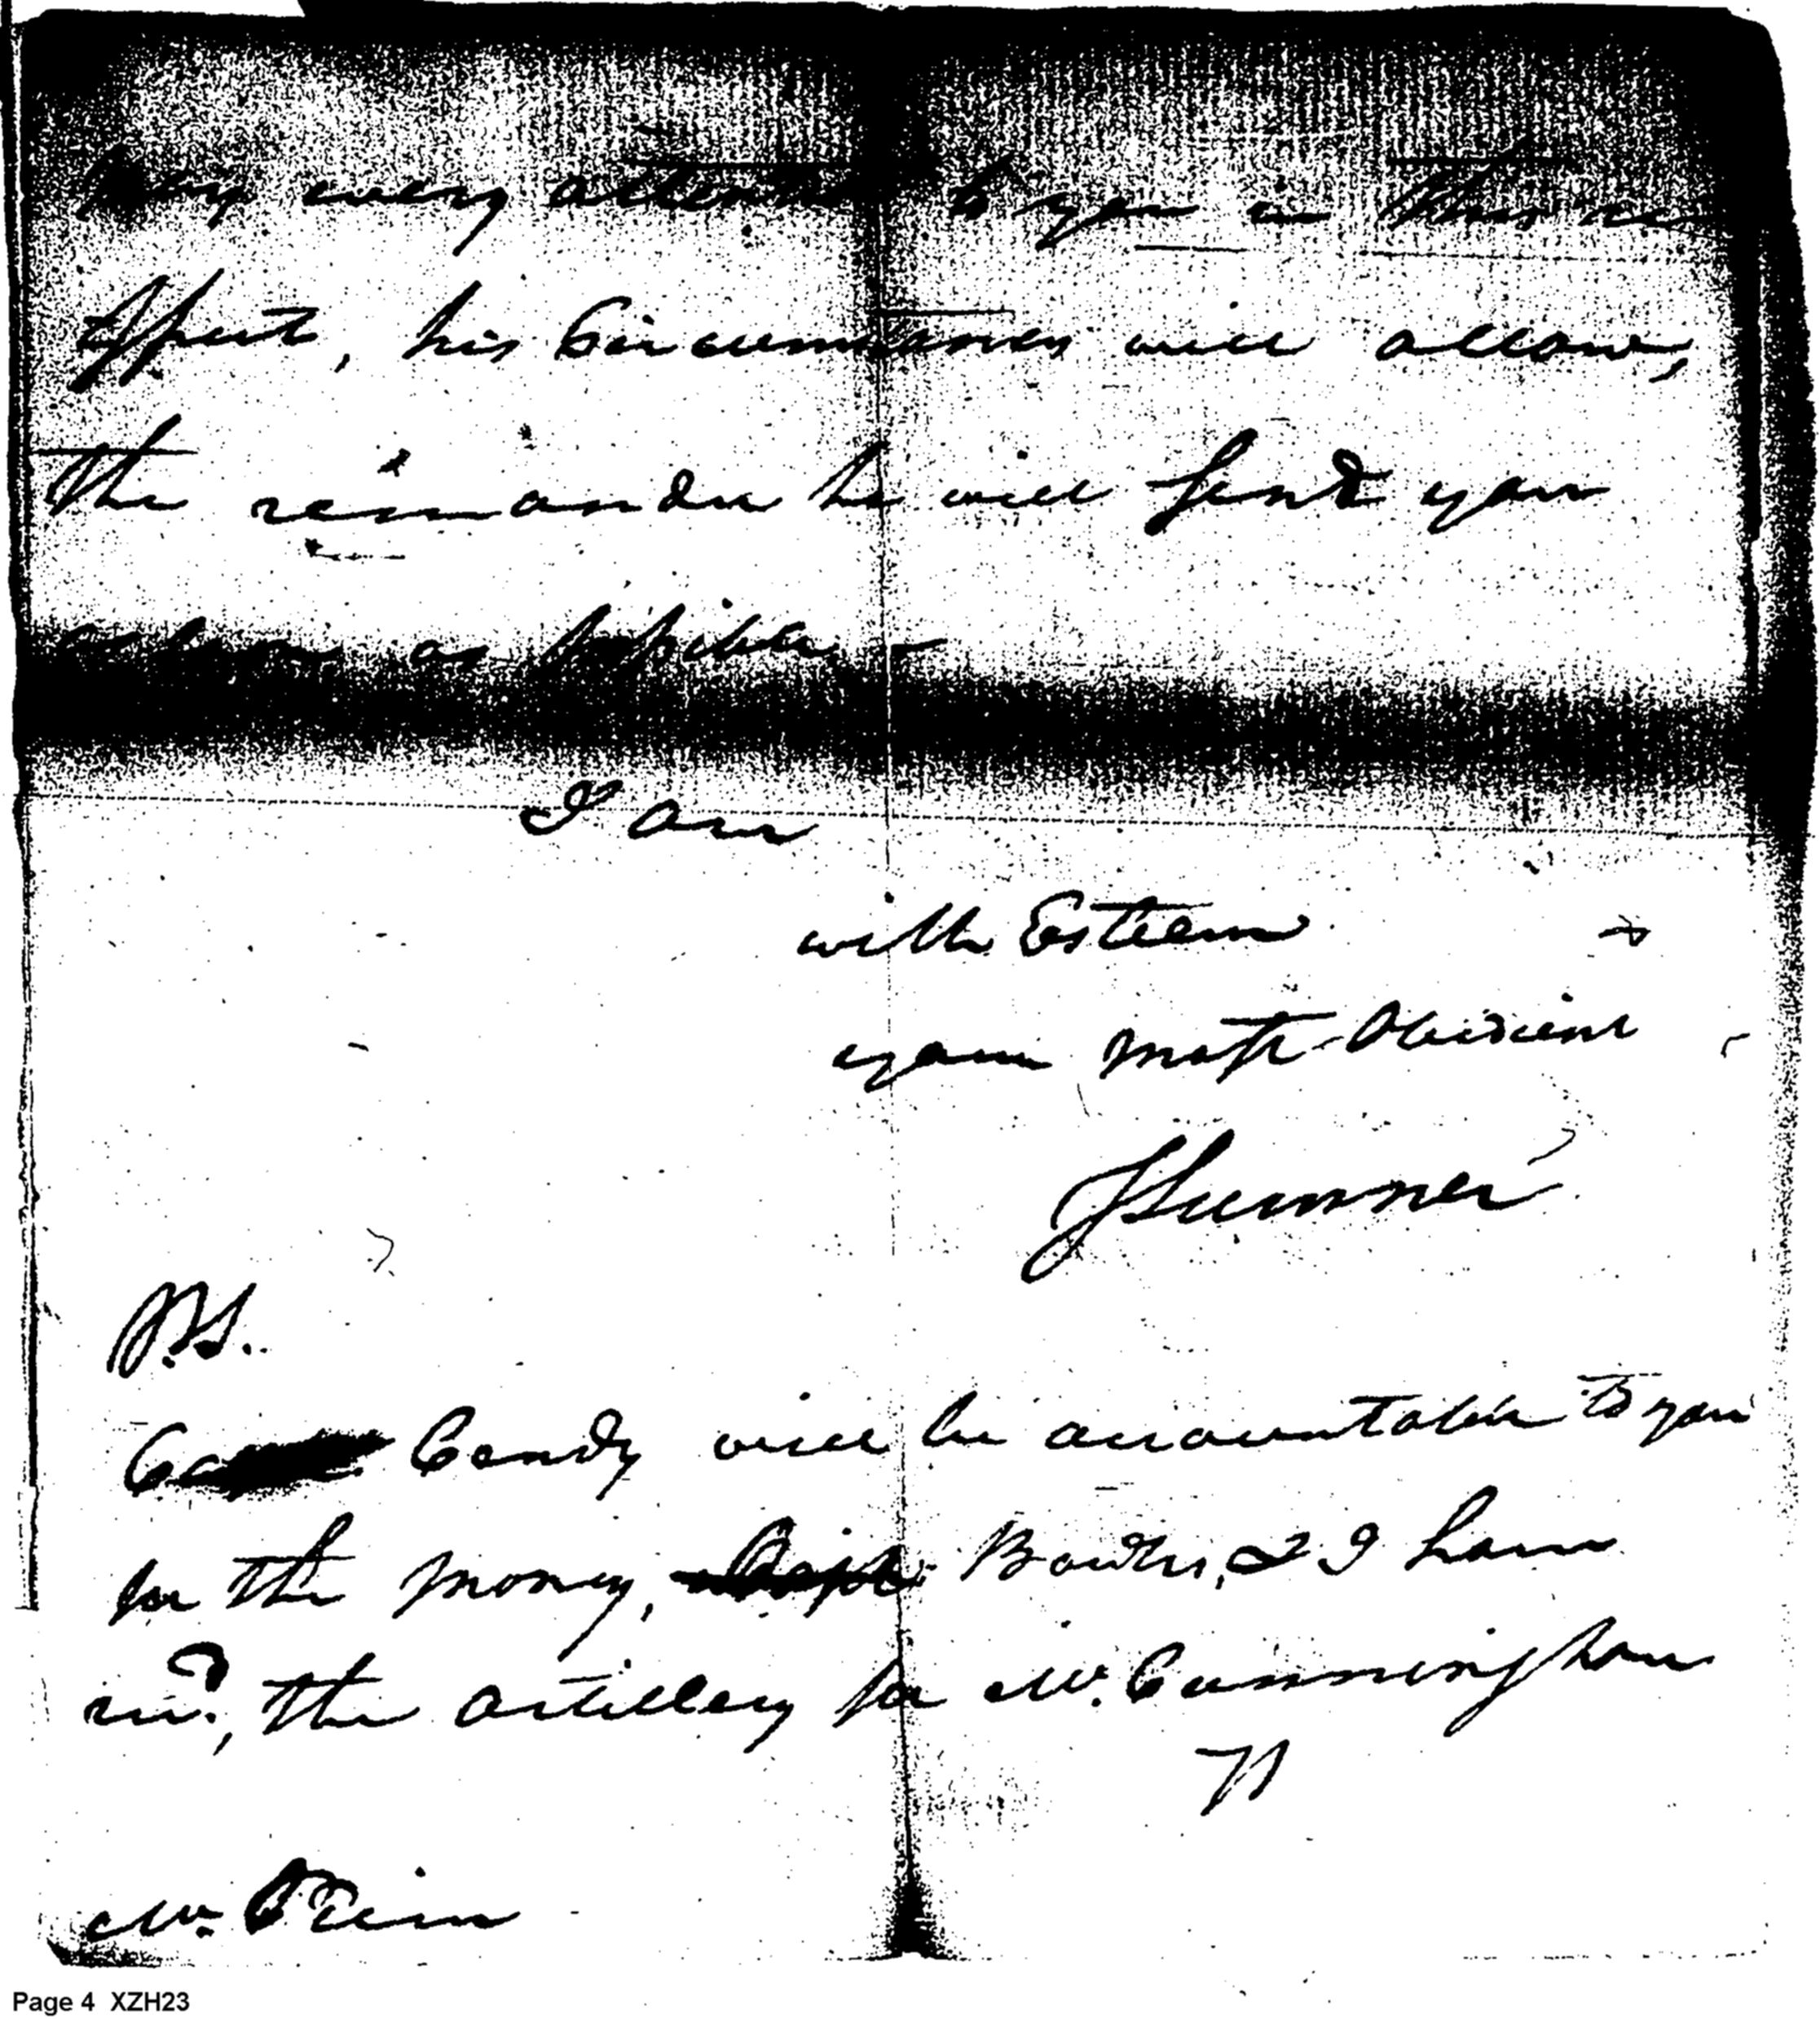 pay every attention to you in this re
spect, his Circumstances will allow,
the remander he will send you
as soon as possible. –
I am
with Esteem
your most Obedient
JSumner
P.S.
Candy will be accountable to you
for the money, Capt. & I have
recd., the artillery for Mr. Cunningham
Mr.
Page 4 XZH23